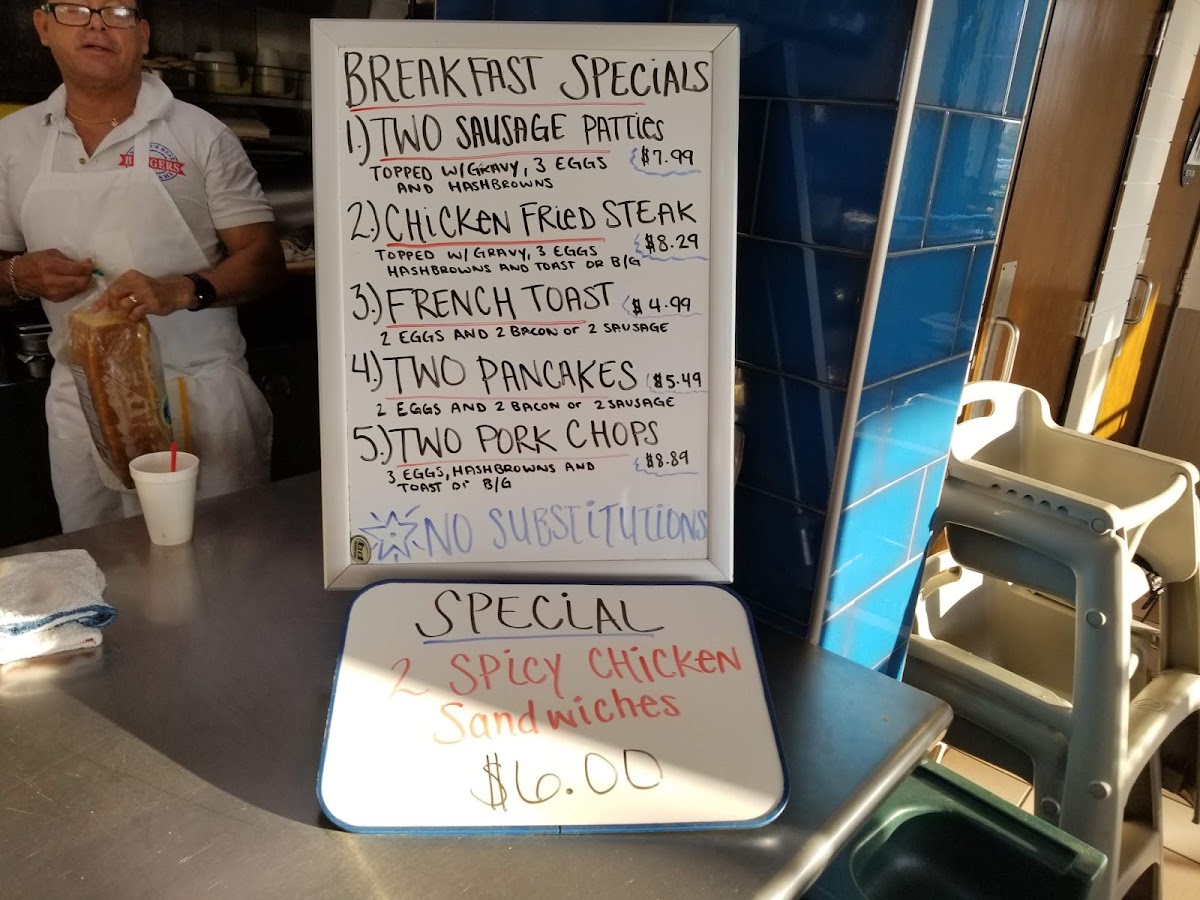 BREAKFAST SPECIALS
1.) TWO SAUSAGE PATTiES
TOPPED W/GRAVY, 3 EGGS $7.99
AND HASHBROWNS
2.) CHiCKEN FRiED STEAK
TOPPED W/ GRAVY, 3 EGGS $8.29
HASHBROWNS AND TOAST OR B/G
3.) FRENCH TOAST $4.99
2 EGGS AND 2 BACON or 2 SAUSAGE
4.) TWO PANCAKES $5.49
2 EGGS AND 2 BACON or 2 SAUSAGE
5.) TWO PORK CHOPS
3 EGGS, HASHBROWNS AND $8.89
TOAST Or B/G
NO SUBSTiTUTiONS
SPECiAL
2 SPiCY CHiCKEN
Sandwiches
$6.00
BURGERS